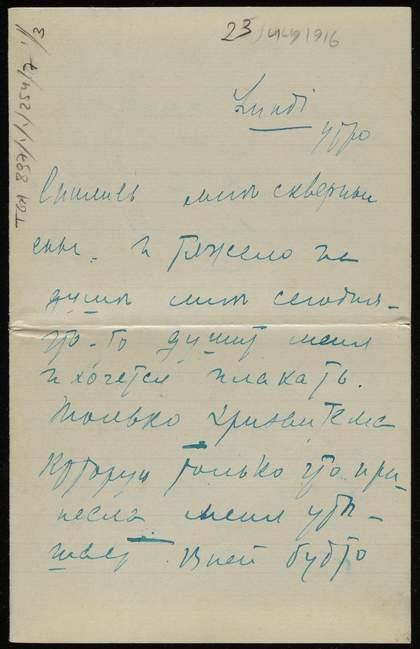 23 / июля 1916
3
Lundi
утро
Снились мне скверные
сны. и тяжело на
душе мне сегодня -
что-то душит меня
и хочется плакать.
Только хризантема
которую только что при
несла меня уте -
шает В ней будто